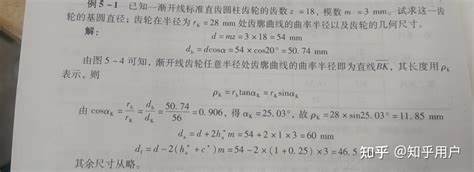 例5-1 已知一渐开线标准直齿圆柱齿轮的齿数z=18,模数m=3 mm。试求这一齿
轮的基圆直径;齿轮在半径为rₖ=28 mm处齿廓曲线的曲率半径以及齿轮的几何尺寸。
解:
d=mz=3×18=54 mm
d_b=dcosα=54×cos20°=50.74 mm
由图5-4可知,渐开线齿轮任意半径处齿廓曲线的曲率半径即为直线BK,其长度用ρₖ
表示。则
ρₖ=r_b tanαₖ=rₖsinαₖ
由cosαₖ=r_b/rₖ=d_b/dₖ=50.74/56=0.906,得αₖ=25.03°,故ρₖ=28×sin25.03°=11.85 mm
dₐ=d+2hₐ*m=54+2×1×3=60 mm
d_f=d-2(hₐ*+c*)m=54-2×(1+0.25)×3=46.5
其余尺寸从略。
知乎 @知乎用户